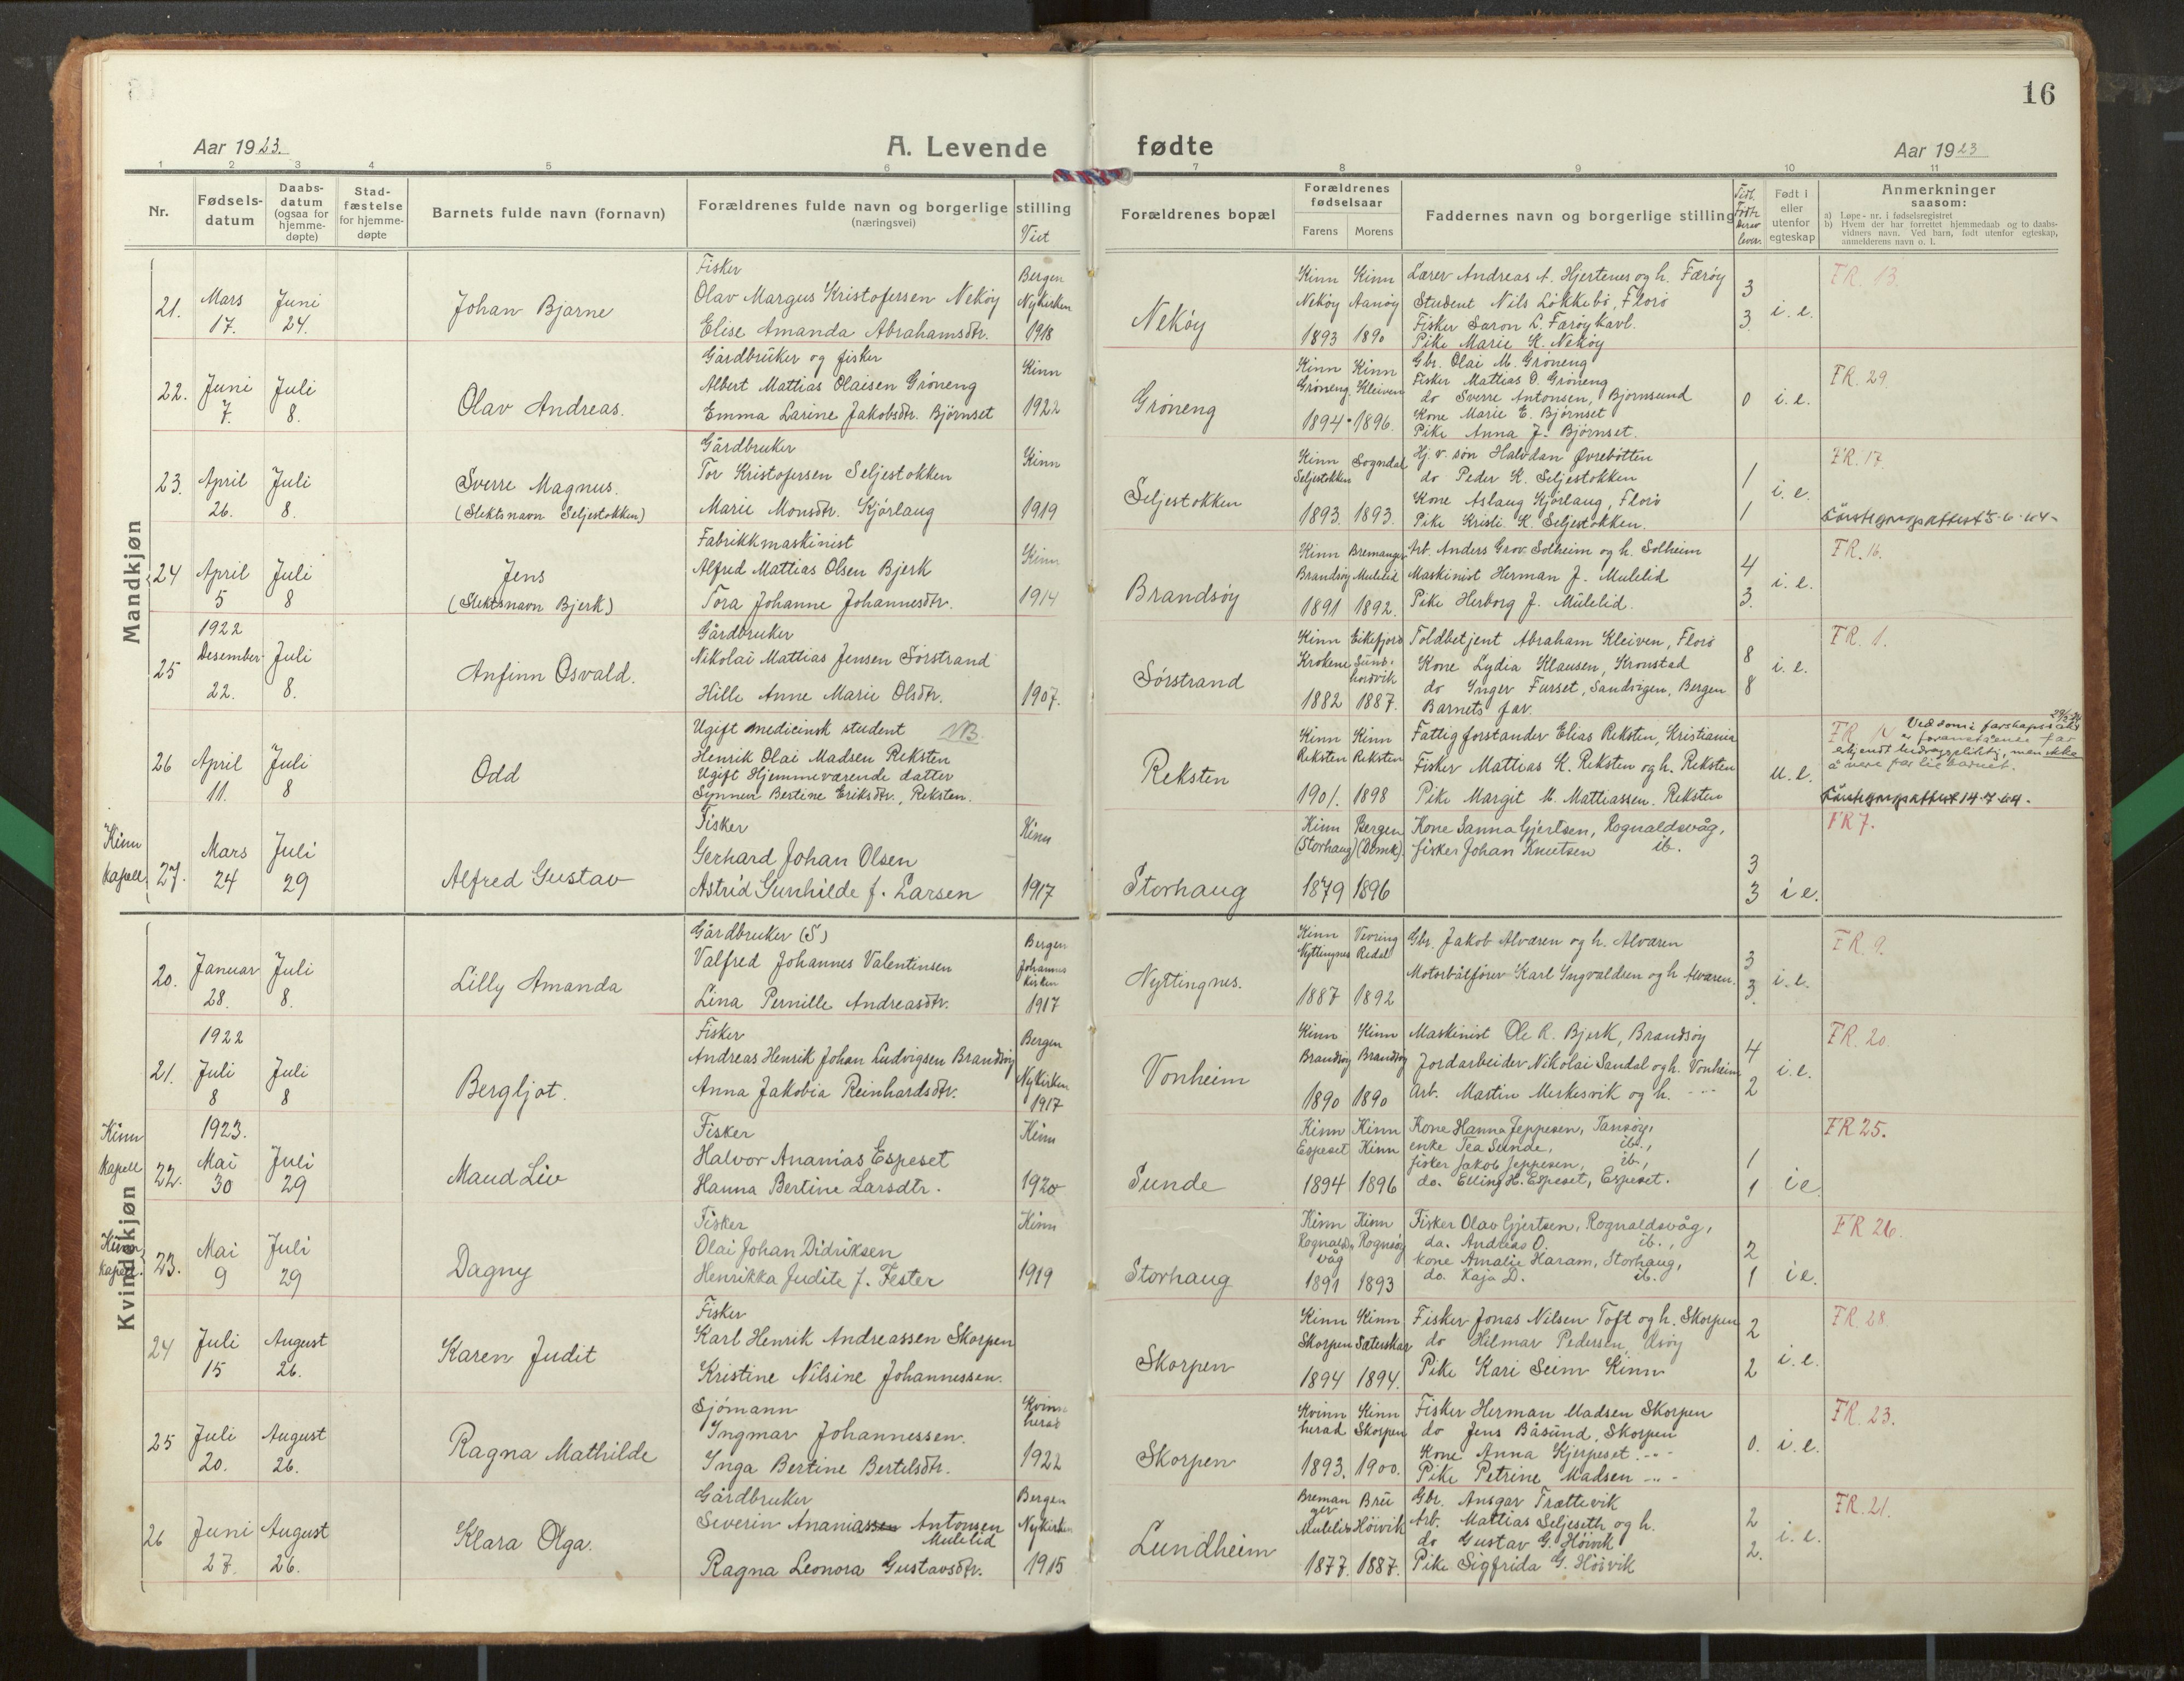 16
Aar 1923.
A. Levende
fødte
Aar 1923
1 2 3 4 5 6 7 8 9 10 11
Nr.
Fødsels-
datum
Daabs-
datum
(ogsaa for
hjemme-
døpte)
Stad-
fæstelse
for hjemme-
døpte
Barnets fulde navn (fornavn)
Forældrenes fulde navn og borgerlige stilling
(næringsvei)
Viet
Forældrenes bopæl
Forældrenes
fødselsaar
Farens Morens
Faddernes navn og borgerlige stilling
Tidl.
Født
Derav
lever.
Født i
eller
utenfor
egteskap
Anmerkninger
saasom:
a) Løpe-nr. i fødselsregistret
b) Hvem der har forrettet hjemmedaab og to daabs-
vidners navn. Ved barn, født utenfor egteskap,
anmelderens navn o. l.
Mandkjøn
21.
Mars
17.
Juni
24.
Johan Bjarne
Fisker
Olav Margus Kristofersen Nekøy
Elise Amanda Abrahamsdtr.
Bergen
Nykirken
1918
Nekøy
Kinn Kinn
Nekøy Aanøy
1893 1890
Lærer Andreas A. Hjertenes og h. Færøy
Student Nils Løkkebø, Florø
Fisker Saron L. Færøykavl.
Pike Marie K. Nekøy
3
3
i. e.
FR. 13.
22.
Juni
7.
Juli
8.
Olav Andreas.
Gårdbruker og fisker
Albert Mattias Olaisen Grøneng
Emma Larine Jakobsdtr. Bjørnset
Kinn
1922
Grøneng
Kinn Kinn
Grøneng Kleiven
1894 1896.
Gbr. Olai M. Grøneng
Fisker Mattias O. Grøneng
do Sverre Antonsen, Bjørnsund
Kone Marie E. Bjørnset
Pike Anna J. Bjørnset.
0
i. e.
FR. 29.
23.
April
26.
Juli
8.
Sverre Magnus.
(Slektsnavn Seljestokken)
Gårdbruker
Tor Kristofersen Seljestokken
Marie Monsdtr. Kjørlaug
Kinn
1919
Seljestokken
Kinn Sogndal
Seljestokken
1893. 1893.
Hj. v. søn Halvdan Øvrebotten
do Peder K. Seljestokken
Kone Aslaug Kjørlaug, Florø
Pike Kristi K. Seljestokken.
1
1
i. e.
FR. 17.
24
April
5
Juli
8
Jens
(Slektsnavn Bjerk)
Fabrikkmaskinist
Alfred Mattias Olsen Bjerk
Tora Johanne Johannesdtr.
Kinn
1914
Brandsøy
Kinn Bremanger
Brandsøy Mulelid
1891 1892.
Arb. Anders Grov. Solheim og h. Solheim
Maskinist Herman J. Mulelid
Pike Herborg J. Mulelid.
4
3.
i. e.
FR. 16.
25
1922
Desember
22.
Juli
8.
Anfinn Osvald.
Gårdbruker
Nikolai Mattias Jensen Sørstrand
Hille Anne Marie Olsdtr.
1907.
Sørstrand
Kinn Eikefjord
Krokene
1882 1887.
Toldbetjent Abraham Kleiven, Florø
Kone Lydia Klausen, Kronstad
do Inger Furset, Sandvigen, Bergen
Barnets far.
8
8
i. e.
FR. 1.
26
April
11.
Juli
8
Odd
Ugift medicinsk student NB.
Henrik Olai Madsen Reksten
Ugift Hjemmeværende datter
Synnev Bertine Eriksdtr., Reksten.
Reksten
Kinn Kinn
Reksten Reksten
1901. 1898
Fattigforstander Elias Reksten, Kristiania
Fisker Mattias K. Reksten og h. Reksten
Pike Margit M. Mattiassen. Reksten
u. e.
FR. 14
Kinn
kapell
27.
Mars
24
Juli
29
Alfred Gustav
Fisker
Gerhard Johan Olsen
Astrid Gunhilde f. Larsen
Kinn
1917
Storhaug
Kinn Bergen
(Storhaug) (Domk)
1879 1896
Kone Sanna Gjertsen, Rognaldsvåg,
fisker Johan Knutsen ib.
3
3
i e.
FR 7.
Kvindekjøn
20.
Januar
28.
Juli
8.
Lilly Amanda
Gårdbruker (S)
Valfred Johannes Valentinsen
Lina Pernille Andreasdtr.
Bergen
Johannes
kirken
1917
Nyttingnes.
Kinn Vevring
Nyttingnes Redal
1887 1892
Gbr. Jakob Alværen og h. Alværen
Motorbåtfører Karl Ingvaldsen og h. Alværen.
3
3.
i. e.
FR. 9.
21.
1922
Juli
8
Juli
8
Bergljot.
Fisker
Andreas Henrik Johan Ludvigsen Brandsøy
Anna Jakobia Reinhardsdtr.
Bergen
Nykirken
1917
Vonheim
Kinn Kinn
Brandsøy Brandsøy
1890 1890
Maskinist Ole R. Bjerk, Brandsøy
Jordarbeider Nikolai Sandal og h. Vonheim
Arb. Martin Merkesvik og h. - -
4
2
i. e.
FR. 20.
Kinn
kapell
22.
1923.
Mai
30
Juli
29
Maud Liv
Fisker
Halvor Ananias Espeset
Hanna Bertine Larsdtr.
Kinn
1920
Sunde
Kinn Kinn
Espeset Kinn
1894 1896
Kone Hanna Jeppesen, Tansøy,
enke Tea Sunde, ib.,
fisker Jakob Jeppesen, ib.,
do. Elling H. Espeset, Espeset.
1
1
i e
FR 25.
Kinn
kapell.
23.
Mai
9
Juli
29
Dagny
Fisker
Olai Johan Didriksen
Henrikka Judite f. Fester
Kinn
1919
Storhaug
Kinn Kinn
Rognalds Rognsøy
våg
1891 1893
Fisker Olav Gjertsen, Rognaldsvåg,
do. Andreas O. ib.,
kone Amalie Haram, Storhaug,
do. Kaja D. ib.
2
1
i e.
FR 26.
24
Juli
15
August
26.
Karen Judit
Fisker
Karl Henrik Andreassen Skorpen
Kristine Nilsine Johannessen.
Skorpen
Kinn Kinn
Skorpen Sæterskar
1894 1894.
Fisker Jonas Nilsen Toft og h. Skorpen
do Hilmar Pedersen,
Pike Kari Seim Kinn
2
2
i. e.
FR. 28.
25
Juli
20.
August
26.
Ragna Mathilde
Sjömann
Ingmar Johannessen.
Inga Bertine Bertelsdtr.
Kvinn
herad
1922
Skorpen
Kvinn Kinn
herad Skorpen
1893. 1900.
Fisker Herman Madsen Skorpen
do Jens Båsund, Skorpen
Kone Anna Kjerpeset. - -
Pike Petrine Madsen - -
0.
i. e.
FR. 23.
26
Juni
27.
August
26.
Klara Olga.
Gårdbruker
Severin Ananiassen Antonsen
Mulelid
Ragna Leonora Gustavsdtr.
Bergen
Nykirken
1915
Lundheim
Breman Bru
ger
Mulelid Høivik
1877. 1887.
Gbr. Ansgar Trættevik
Arb. Mattias Seljeseth og h.
do Gustav G. Høivik
Pike Sigfrida G. Høivik
2
2.
i. e.
FR. 21.